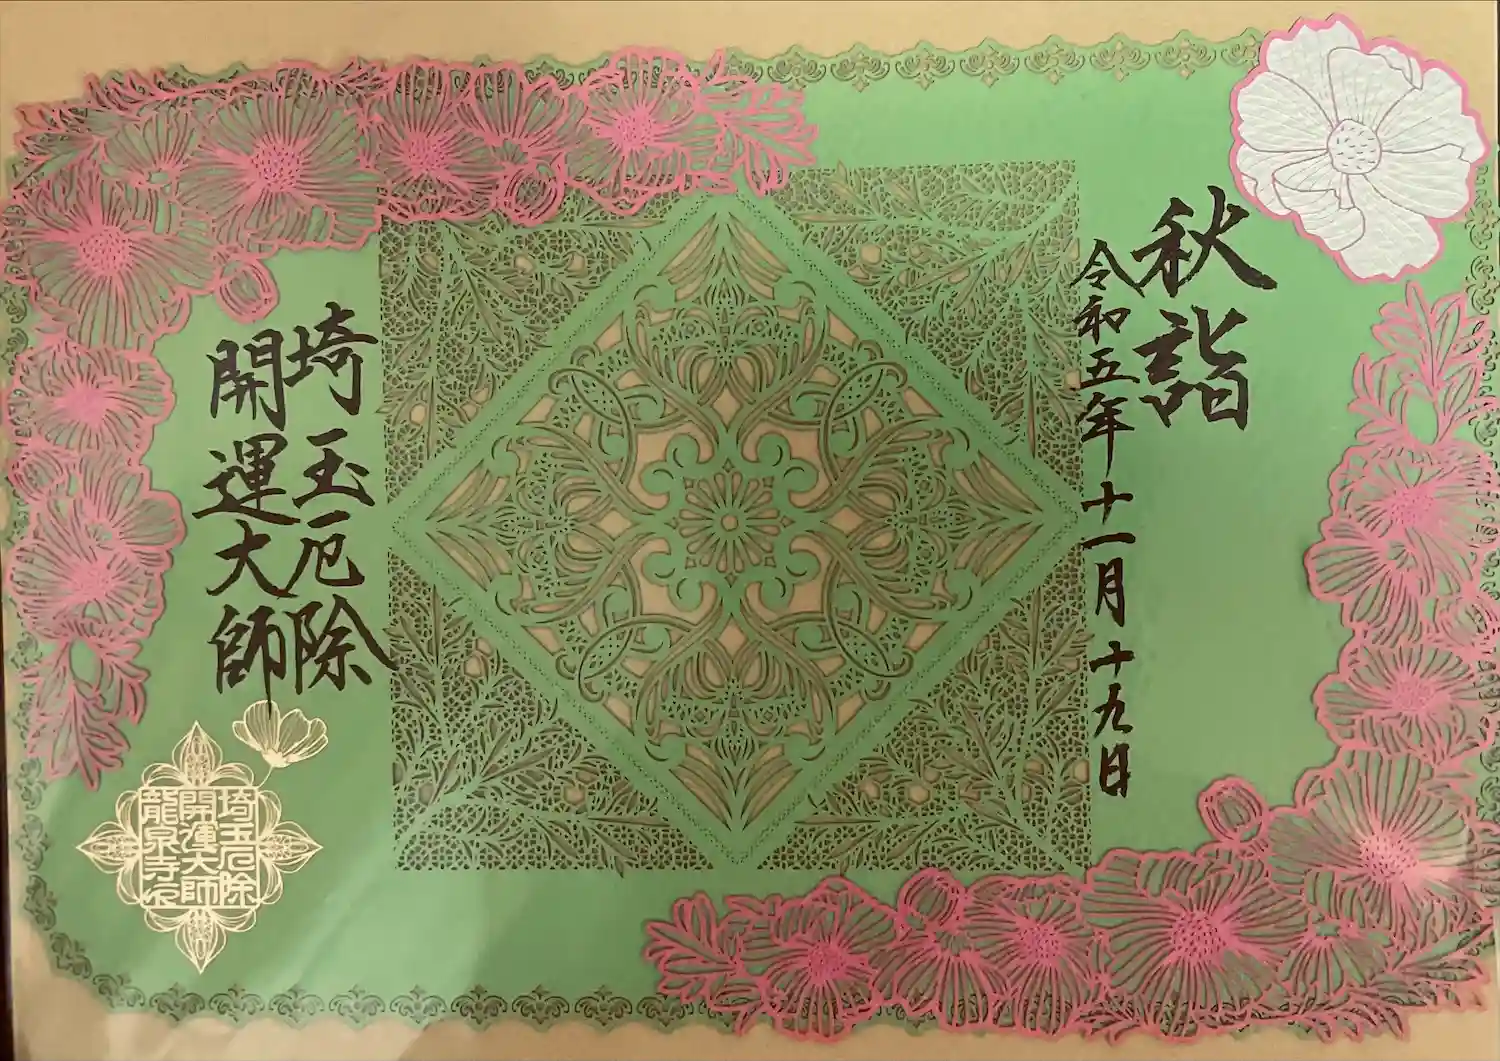 秋詣
令和五年十一月十九日
埼玉厄除
開運大師
埼玉厄除
開運大師
龍泉寺印